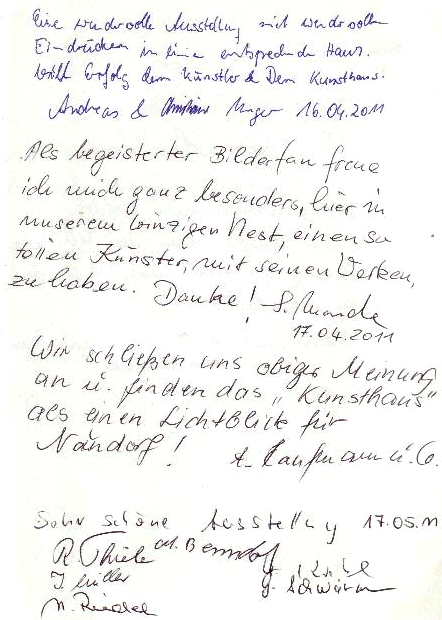 Eine wundervolle Ausstellung mit wundervollen
Eindrücken in einem entsprechende Haus.
Viel Erfolg dem Künstler & Dem Kunsthaus.
Andreas & Christiane Unger 16.04.2011
Als begeisterter Bilderfan freue
ich mich ganz besonders, hier in
unserem winzigen Nest, einen so
tollen Künster, mit seinen Werken,
zu haben. Danke! S.
17.04.2011
Wir schließen uns obiger Meinung
an u. finden das „Kunsthaus"
als einen Lichtblick für
Nandorf! A. Kaufmann u. Co.
Sehr schöne Ausstellung 17.05.11
R. Thiele
J. Müller
G. Schwarm
M. Riedel